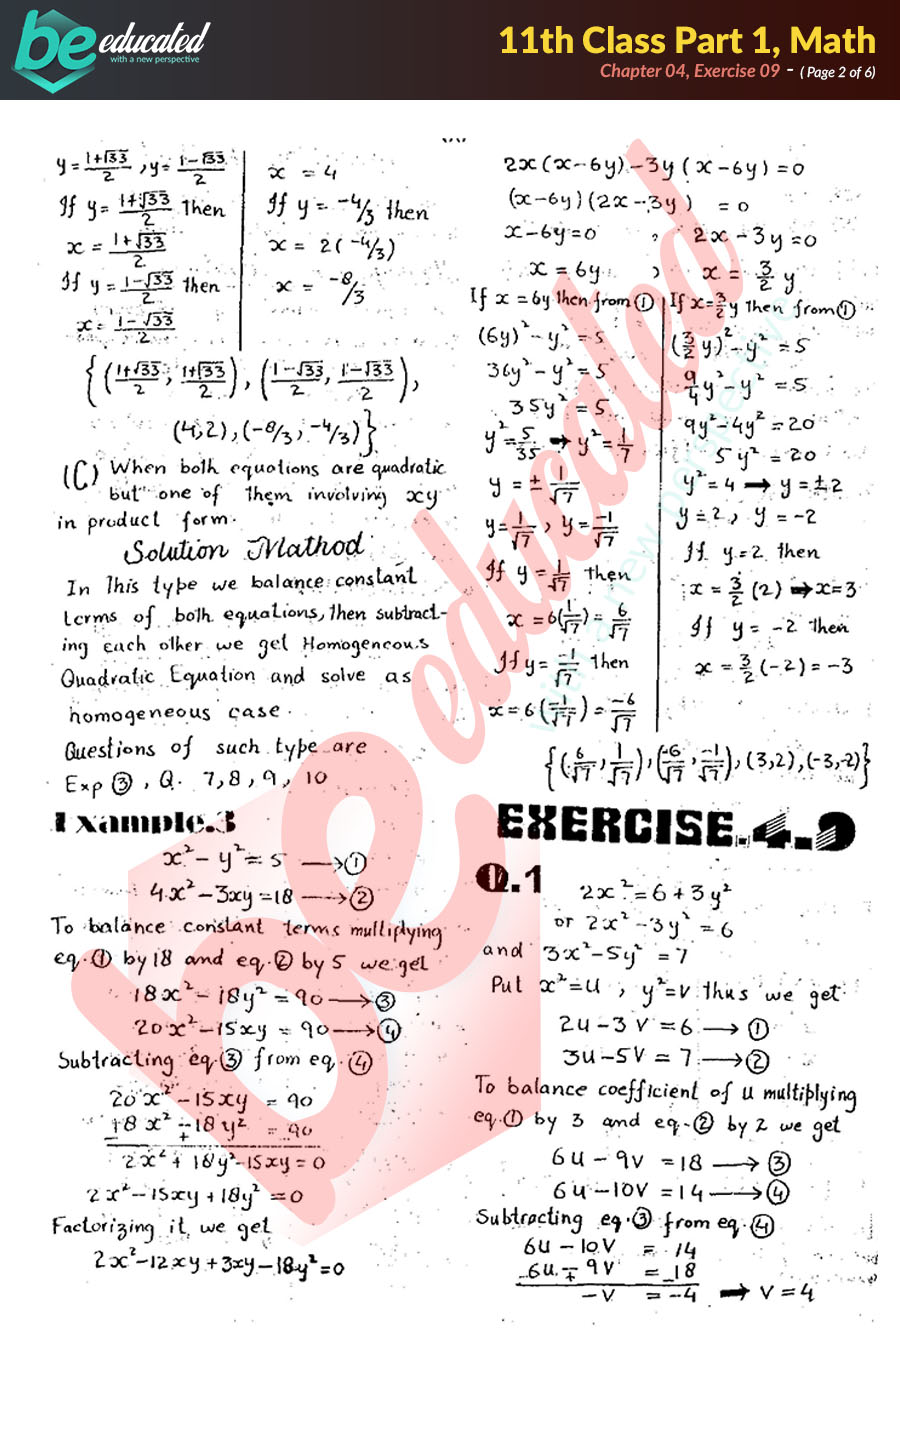 be educated
with a new perspective
11th Class Part 1, Math
Chapter 04, Exercise 09 - ( Page 2 of 6)
y = (1+√33)/2 , y = (1-√33)/2
If y = (1+√33)/2 Then
x = (1+√33)/2
If y = (1-√33)/2 then
x = (1-√33)/2
x = 4
If y = -4/3 then
x = 2(-4/3)
x = -8/3
{((1+√33)/2, (1+√33)/2), ((1-√33)/2, (1-√33)/2),
(4,2),(-8/3,-4/3)}
(C) When both equations are quadratic
but one of them involving xy
in product form.
Solution Mathod
In This type we balance constant
terms of both equations, then subtract-
ing each other we get Homogeneous
Quadratic Equation and solve as
homogeneous case.
Questions of such type are
Exp ③, Q. 7,8,9, 10
Example.3
x² - y² = 5 → ①
4x² - 3xy = 18 → ②
To balance constant terms multiplying
eq.① by 18 and eq.② by 5 we get
18x² - 18y² = 90 → ③
20x² - 15xy = 90 → ④
Subtracting eq.③ from eq.④
20x² - 15xy = 90
18x² - 18y² = 90
2x² + 18y² - 15xy = 0
2x² - 15xy + 18y² = 0
Factorizing it, we get
2x² - 12xy + 3xy - 18y² = 0
2x(x-6y) - 3y(x-6y) = 0
(x-6y)(2x-3y) = 0
x-6y=0 , 2x-3y=0
x = 6y , x = 3/2 y
If x = 6y then from ①
(6y)² - y² = 5
36y² - y² = 5
35y² = 5
y² = 5/35 → y² = 1/7
y = ± 1/√7
y = 1/√7 , y = -1/√7
If y = 1/√7 then
x = 6(1/√7) = 6/√7
If y = -1/√7 then
x = 6(-1/√7) = -6/√7
If x = 3/2 y then from ①
(3/2 y)² - y² = 5
9/4 y² - y² = 5
9y² - 4y² = 20
5y² = 20
y² = 4 → y = ±2
y = 2 , y = -2
If y = 2 then
x = 3/2 (2) → x=3
If y = -2 then
x = 3/2 (-2) = -3
{(6/√7, 1/√7), (-6/√7, -1/√7), (3,2), (-3,-2)}
EXERCISE.4.9
Q.1 2x² = 6 + 3y²
or 2x² - 3y² = 6
and 3x² - 5y² = 7
Put x² = u , y² = v thus we get
2u - 3v = 6 → ①
3u - 5v = 7 → ②
To balance coefficient of u multiplying
eq.① by 3 and eq.② by 2 we get
6u - 9v = 18 → ③
6u - 10v = 14 → ④
Subtracting eq.③ from eq.④
6u - 10v = 14
6u ∓ 9v = 18
-v = -4 → v = 4
be educated
with a new perspective